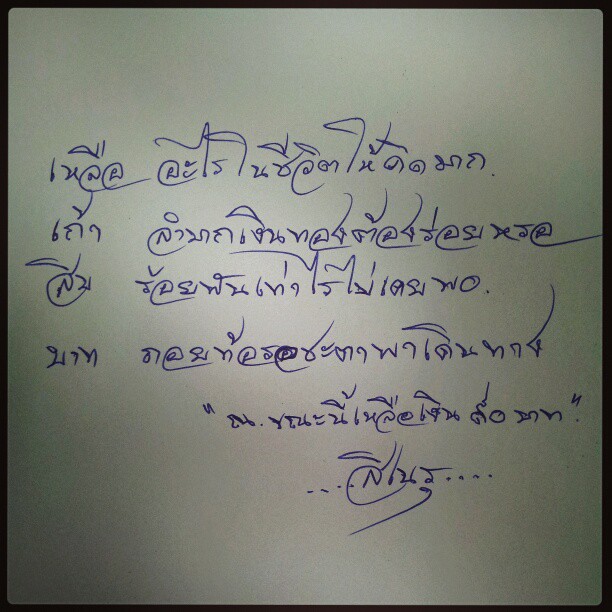 เหลือ อะไรในชีวิตให้คิดมาก.
เก้า ลำบากเงินทองต้องร่อยหรอ
สิบ ร้อยพันเท่าไรไม่เคยพอ.
บาท ถอยท้อรอชะตาพาเดินทาง
"ณ. ขณะนี้เหลือเงิน ๙๐ บาท".
....สิเนรุ....